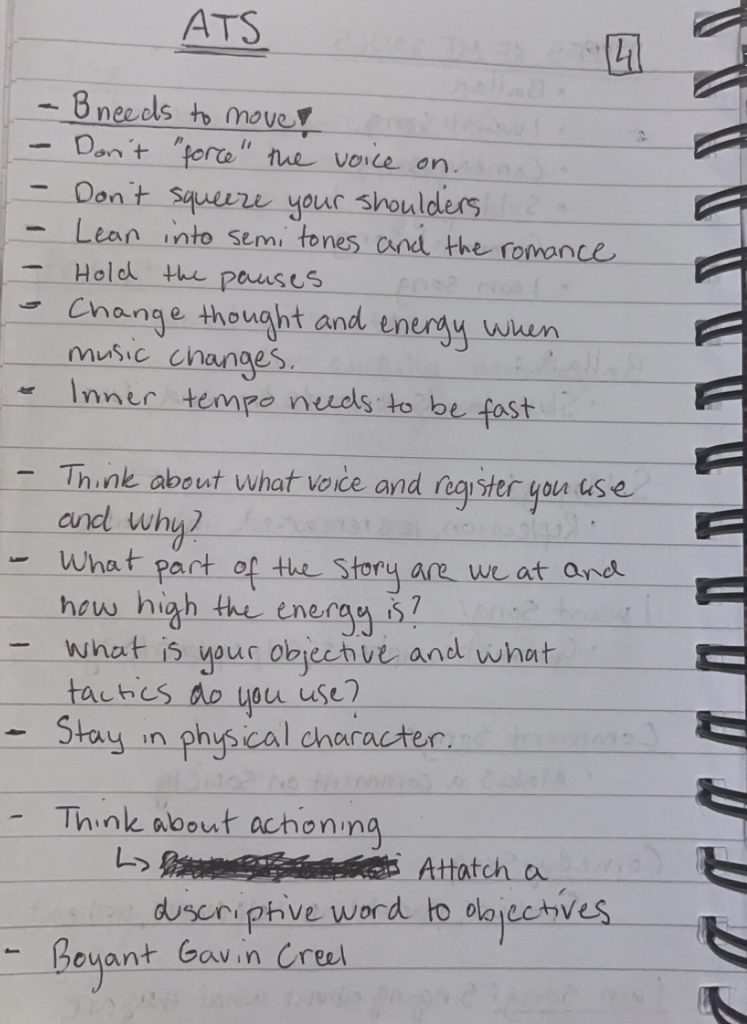 ATS
4
- B needs to move!
- Don't "force" the voice on.
- Don't squeeze your shoulders
- Lean into semi tones and the romance
- Hold the pauses
- Change thought and energy when
music changes.
- Inner tempo needs to be fast
- Think about what voice and register you use
and why?
- What part of the story are we at and
how high the energy is?
- What is your objective and what
tactics do you use?
- Stay in physical character.
- Think about actioning
↳ Attatch a
discriptive word to objectives
- Boyant Gavin Creel